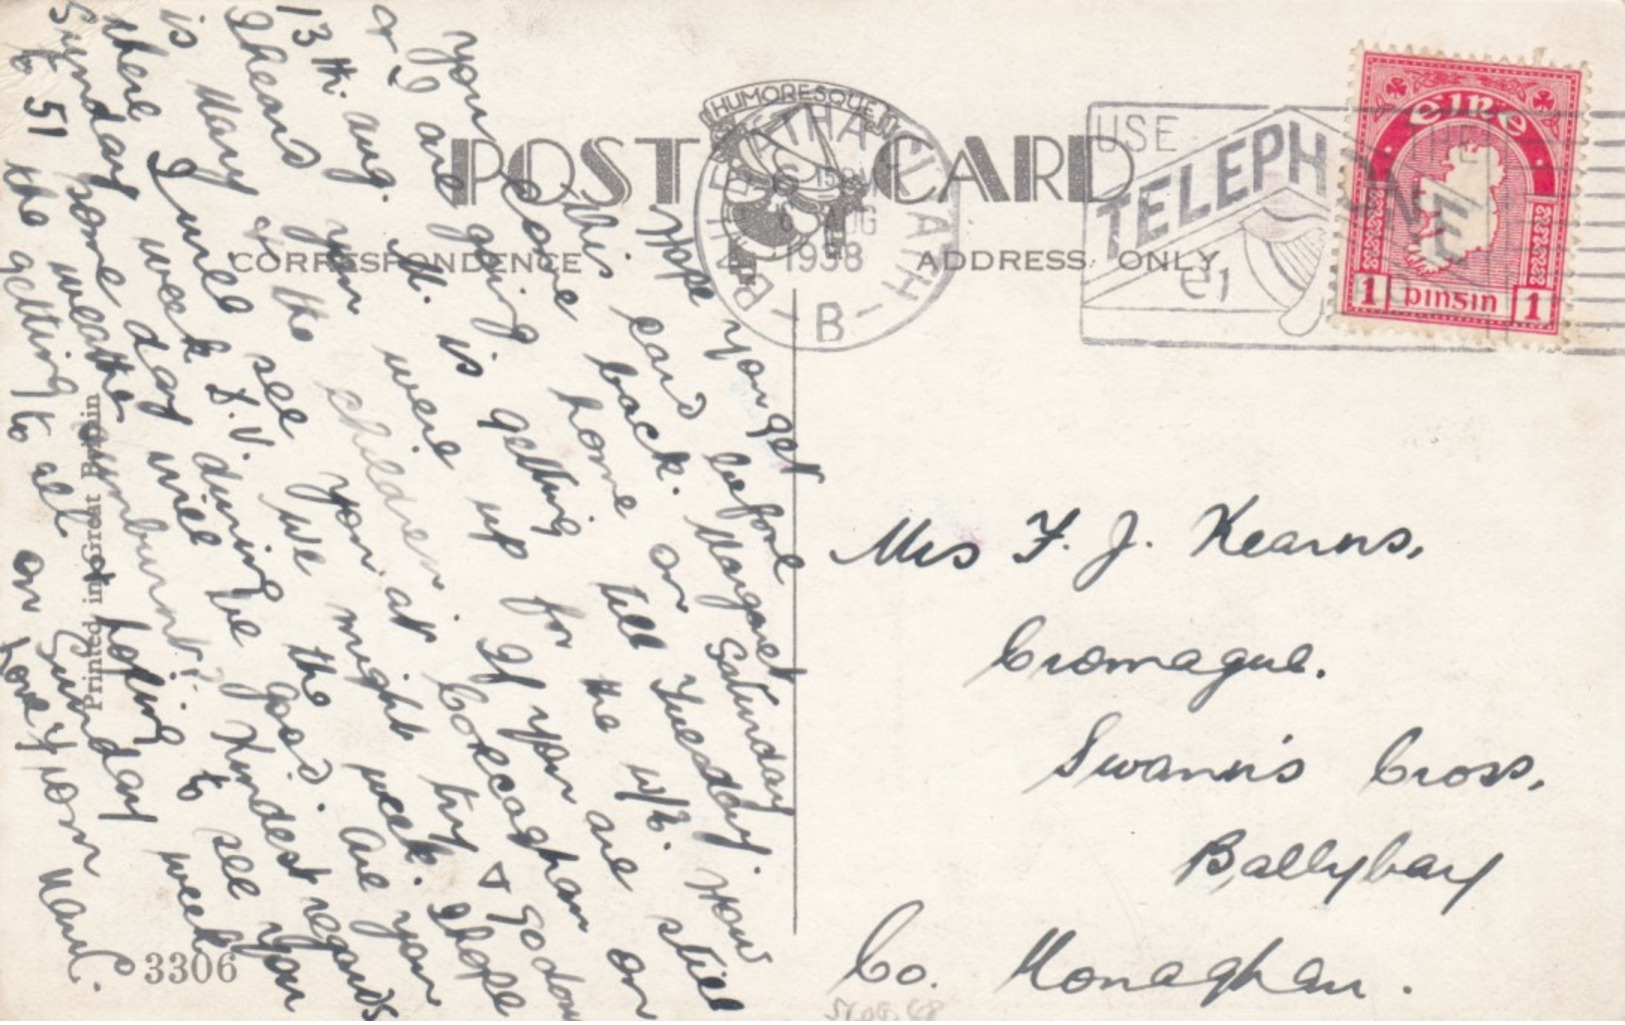 POST CARD
HUMORESQUE
CORRESPONDENCE
ADDRESS ONLY
BAILE ÁTHA CLIATH
6 AUG
1938
B
USE
TELEPHONE
THE
Éire
1 pinsin 1
Hope you get
this card before Saturday
you come back. Margaret
home on Tuesday. How
& I are going till the w/e. still
13th. Aug. M. is getting up for
I heard you were If you are on
is Mary & the children at Corcaghan & go down
there I will see you try
Sunday week D.V. we might week. I hope
some day during the Are you
to 51 weather will be good. Kindest regards
the sunburnt?
getting to all hoping to see you
on Sunday week
Love from
Mrs F. J. Kearns,
Cromague.
Swann's Cross,
Ballybay
Co. Monaghan.
Printed in Great Britain
3306